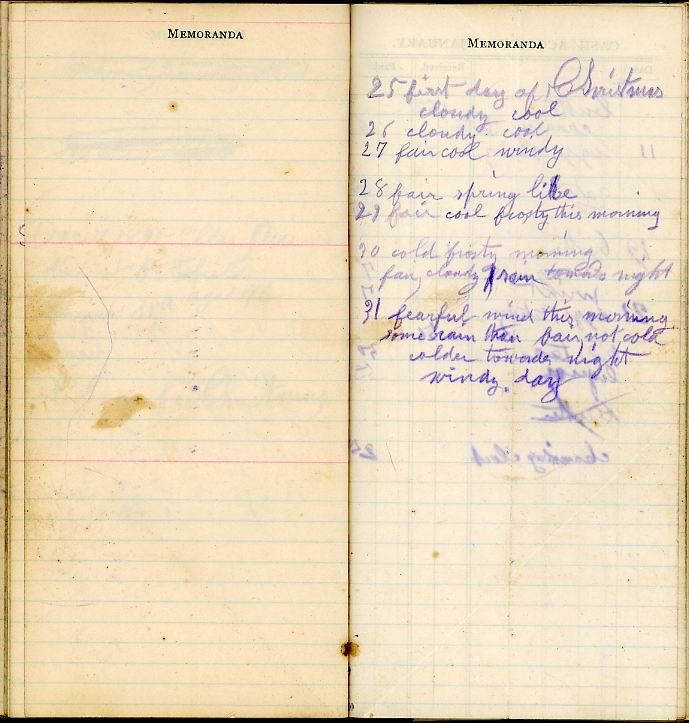 MEMORANDA
MEMORANDA
25 first day of Christmas
cloudy cool
26 cloudy cool
27 fair cool windy
28 fair spring like
29 fair cool frosty this morning
30 cold frosty morning
fair, cloudy rain towards night
31 fearful wind this morning
some rain then fair, not cold
colder towards night
windy day